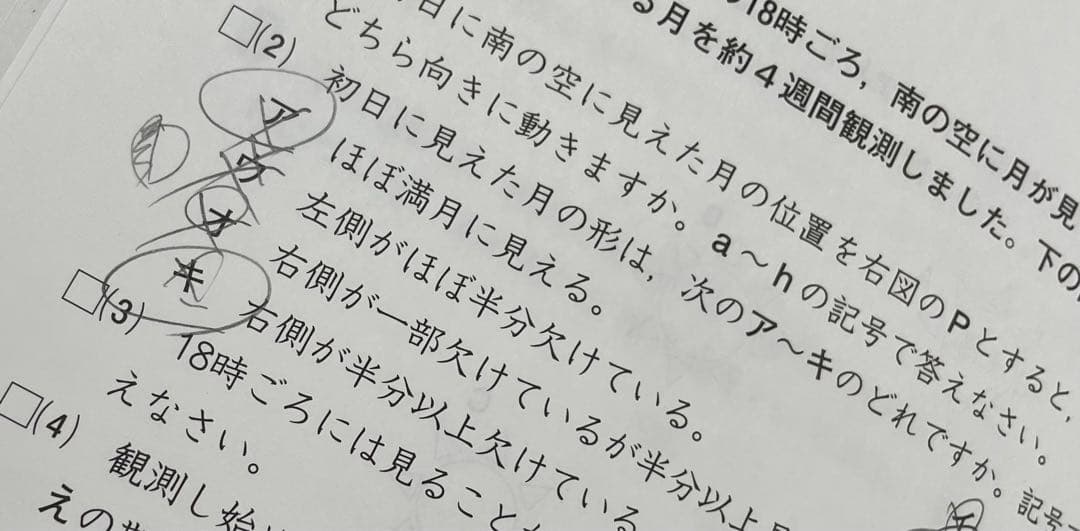 18時ごろ,南の空に月が見
る月を約4週間観測しました。下の
日に南の空に見えた月の位置を右図のPとすると,
どちら向きに動きますか。a〜hの記号で答えなさい。
□(2) 初日に見えた月の形は,次のア〜キのどれですか。記号で
ア ほぼ満月に見える。
ウ 左側がほぼ半分欠けている。
オ 右側が一部欠けているが半分以上
キ 右側が半分以上欠けている
□(3) 18時ごろには見ること
えなさい。
□(4) 観測し始
えの